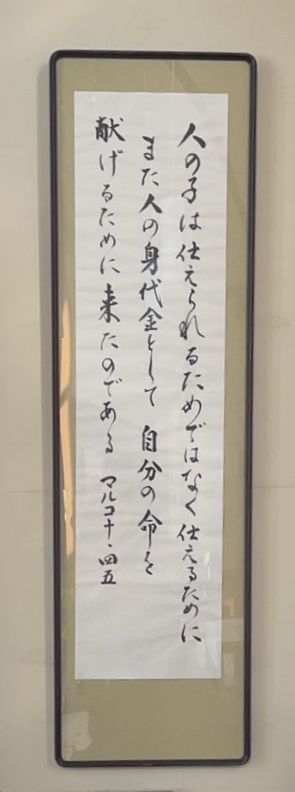 人の子は仕えられるためではなく仕えるために
また人の身代金として 自分の命を
献げるために来たのである マルコ十・四五